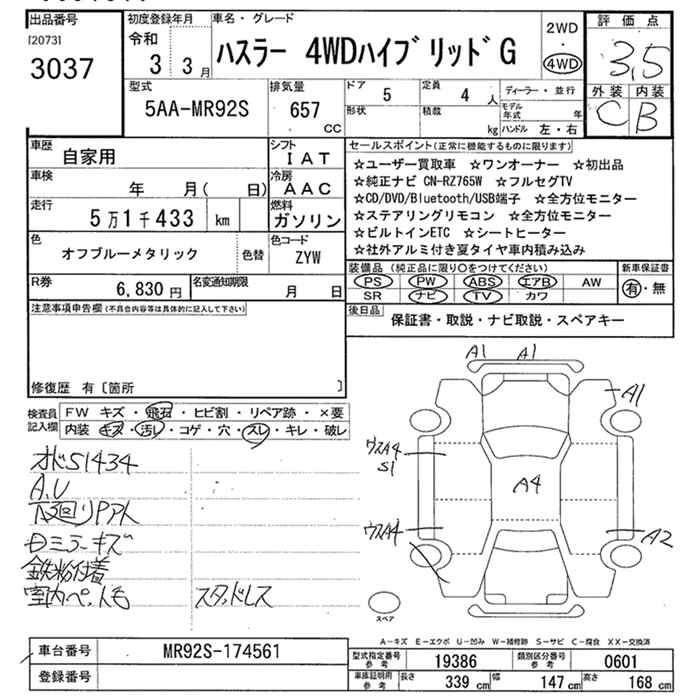 出品番号
[2073]
3037
初度登録年月
令和
3 3月
車名・グレード
ハスラー 4WDハイブリッドG
2WD
・
4WD
評価点
3.5
外装 内装
C B
型式
5AA-MR92S
排気量
657
CC
ドア
5
定員
4 人
形状
積載
kg
ディーラー・並行
モデル年式 年
ハンドル 左・右
車歴
自家用
シフト
IAT
車検
年 月( 日)
冷房
AAC
走行
5万1千433 km
燃料
ガソリン
色
オフブルーメタリック
色替
色コード
ZYW
R券
6,830 円
名変通知期限
月 日
セールスポイント(正常に機能するものに限ります)
☆ユーザー買取車 ☆ワンオーナー ☆初出品
☆純正ナビ CN-RZ765W ☆フルセグTV
☆CD/DVD/Bluetooth/USB端子 ☆全方位モニター
☆ステアリングリモコン ☆全方位モニター
☆ビルトインETC ☆シートヒーター
☆社外アルミ付き夏タイヤ車内積み込み
装備品 (純正品に限り○をつけてください)
PS PW ABS エアB AW
SR ナビ TV カワ
新車保証書
有・無
後日品
保証書・取説・ナビ取説・スペアキー
注意事項申告欄(不具合内容等は具体的に記入して下さい)
修復歴 有〔箇所 〕
検査員記入欄
FW キズ・飛石・ヒビ割・リペア跡・×要
内装 キズ・汚レ・コゲ・穴・スレ・キレ・破レ
オド51434
A.U
下廻りPアト
Dミラーキズ
鉄粉付着
室内ペット毛
スタッドレス
A1 A1
A1
ウスA4
S1
A4
ウスA4
A2
スペア
A-キズ E-エクボ U-凹み W-補修跡 S-サビ C-腐食 XX-交換済
車台番号
MR92S-174561
登録番号
型式指定番号参考
19386
類別区分番号参考
0601
車庫証明用参考
長さ 339 cm
幅 147 cm
高さ 168 cm